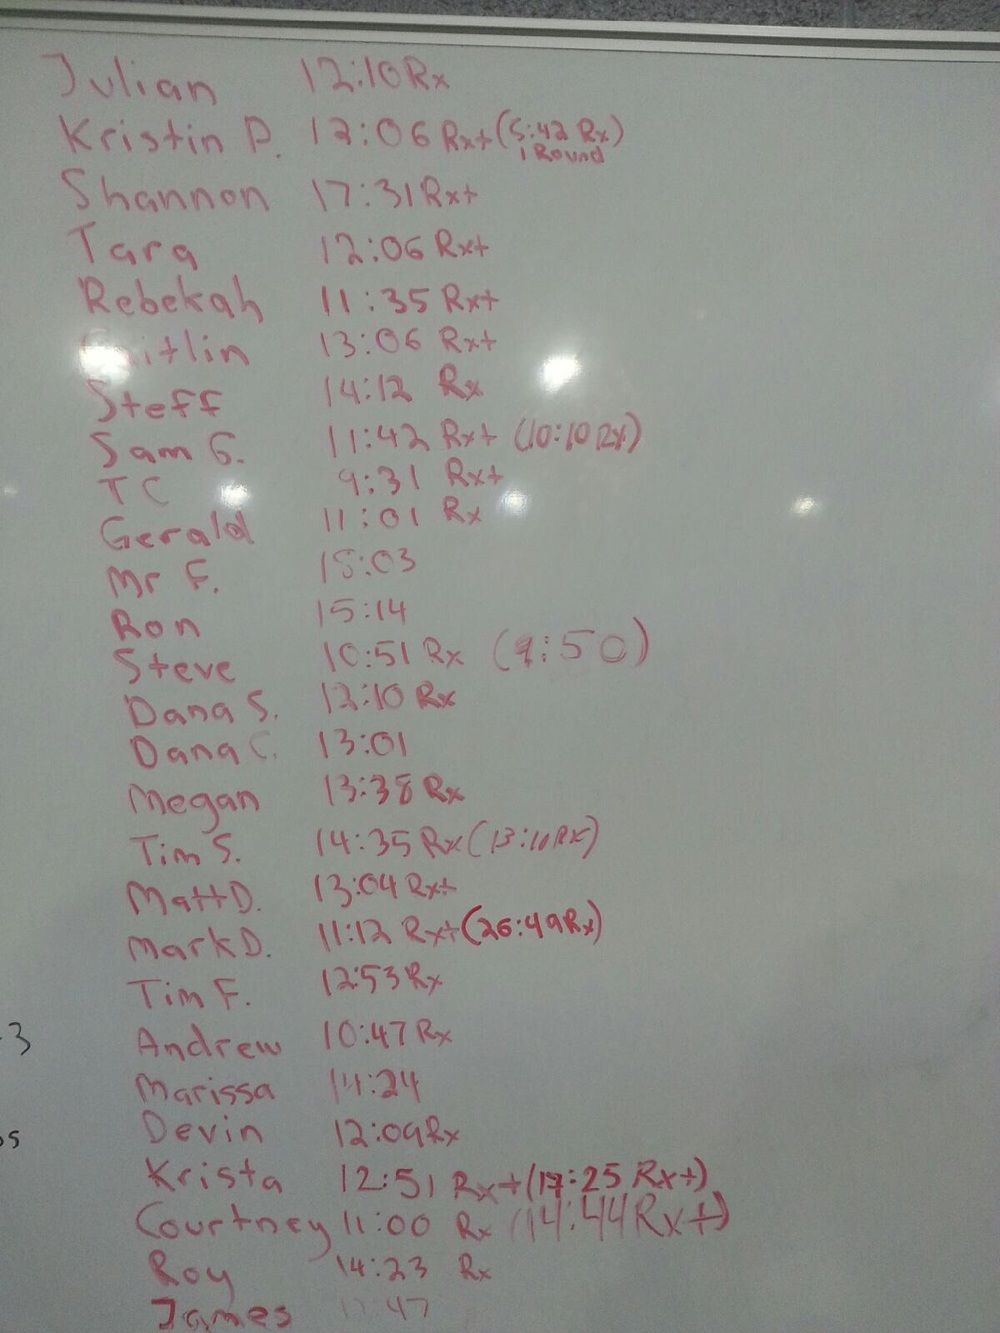 Julian 12:10 Rx
Kristin P. 12:06 Rx+ (5:42 Rx)
1 Round
Shannon 17:31 Rx+
Tara 12:06 Rx+
Rebekah 11:35 Rx+
Caitlin 13:06 Rx+
Steff 14:12 Rx
Sam G. 11:42 Rx+ (10:10 Rx)
TC 9:31 Rx+
Gerald 11:01 Rx
Mr F. 18:03
Ron 15:14
Steve 10:51 Rx (9:50)
Dana S. 12:10 Rx
Dana C. 13:01
Megan 13:38 Rx
Tim S. 14:35 Rx (13:10 Rx)
Matt D. 13:04 Rx+
Mark D. 11:12 Rx+ (26:49 Rx)
Tim F. 12:53 Rx
3 Andrew 10:47 Rx
Marissa 14:24
Devin 12:09 Rx
Krista 12:51 Rx+ (17:25 Rx+)
Courtney 11:00 Rx (14:44 Rx+)
Roy 14:23 Rx
James